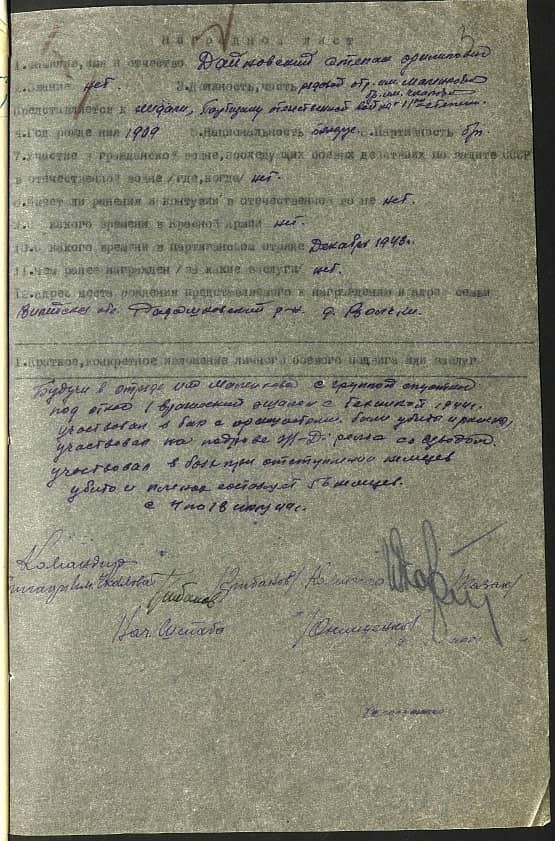 Наградной лист
1. Фамилия, имя и отчество Дайновский Степан Филипович
2. Звание нет. 3. Должность, часть рядовой отр. им. Маленкова
бр. им. Чкалова
Представляется к медали, Партизану отечественной войны II степени.
4. Год рождения 1909 5. Национальность 6. Партийность бп.
7. Участие в гражданской войне, последующих боевых действиях по защите СССР
в отечественной войне /где, когда/ нет.
8. Имеет ли ранения и контузии в отечественной войне нет.
9. С какого времени в Красной Армии нет.
10. С какого времени в партизанском отряде Декабрь 1943г.
11. Чем ранее награжден /за какие заслуги/ нет.
12. Адрес места рождения представляемого к награждению и адрес семьи
Вилейская обл. Радошковский р-н. д.
1. Краткое, конкретное изложение личного боевого подвига или заслуг
Будучи в отряде им Маленкова с группой спустил
под откос 1 вражеский эшелон с 1944г.
участвовал в бою с были убиты и ранены,
участвовал на подрыве Ж-Д рельс со взводом.
участвовал в бою при отступлении немцев
убито и пленых состовует 56 немцев.
с 4 по 18 июля 44г.
Командир
бригады им. Чкалова Грибанов /Грибанов/ /Казак/
Нач. Штаба